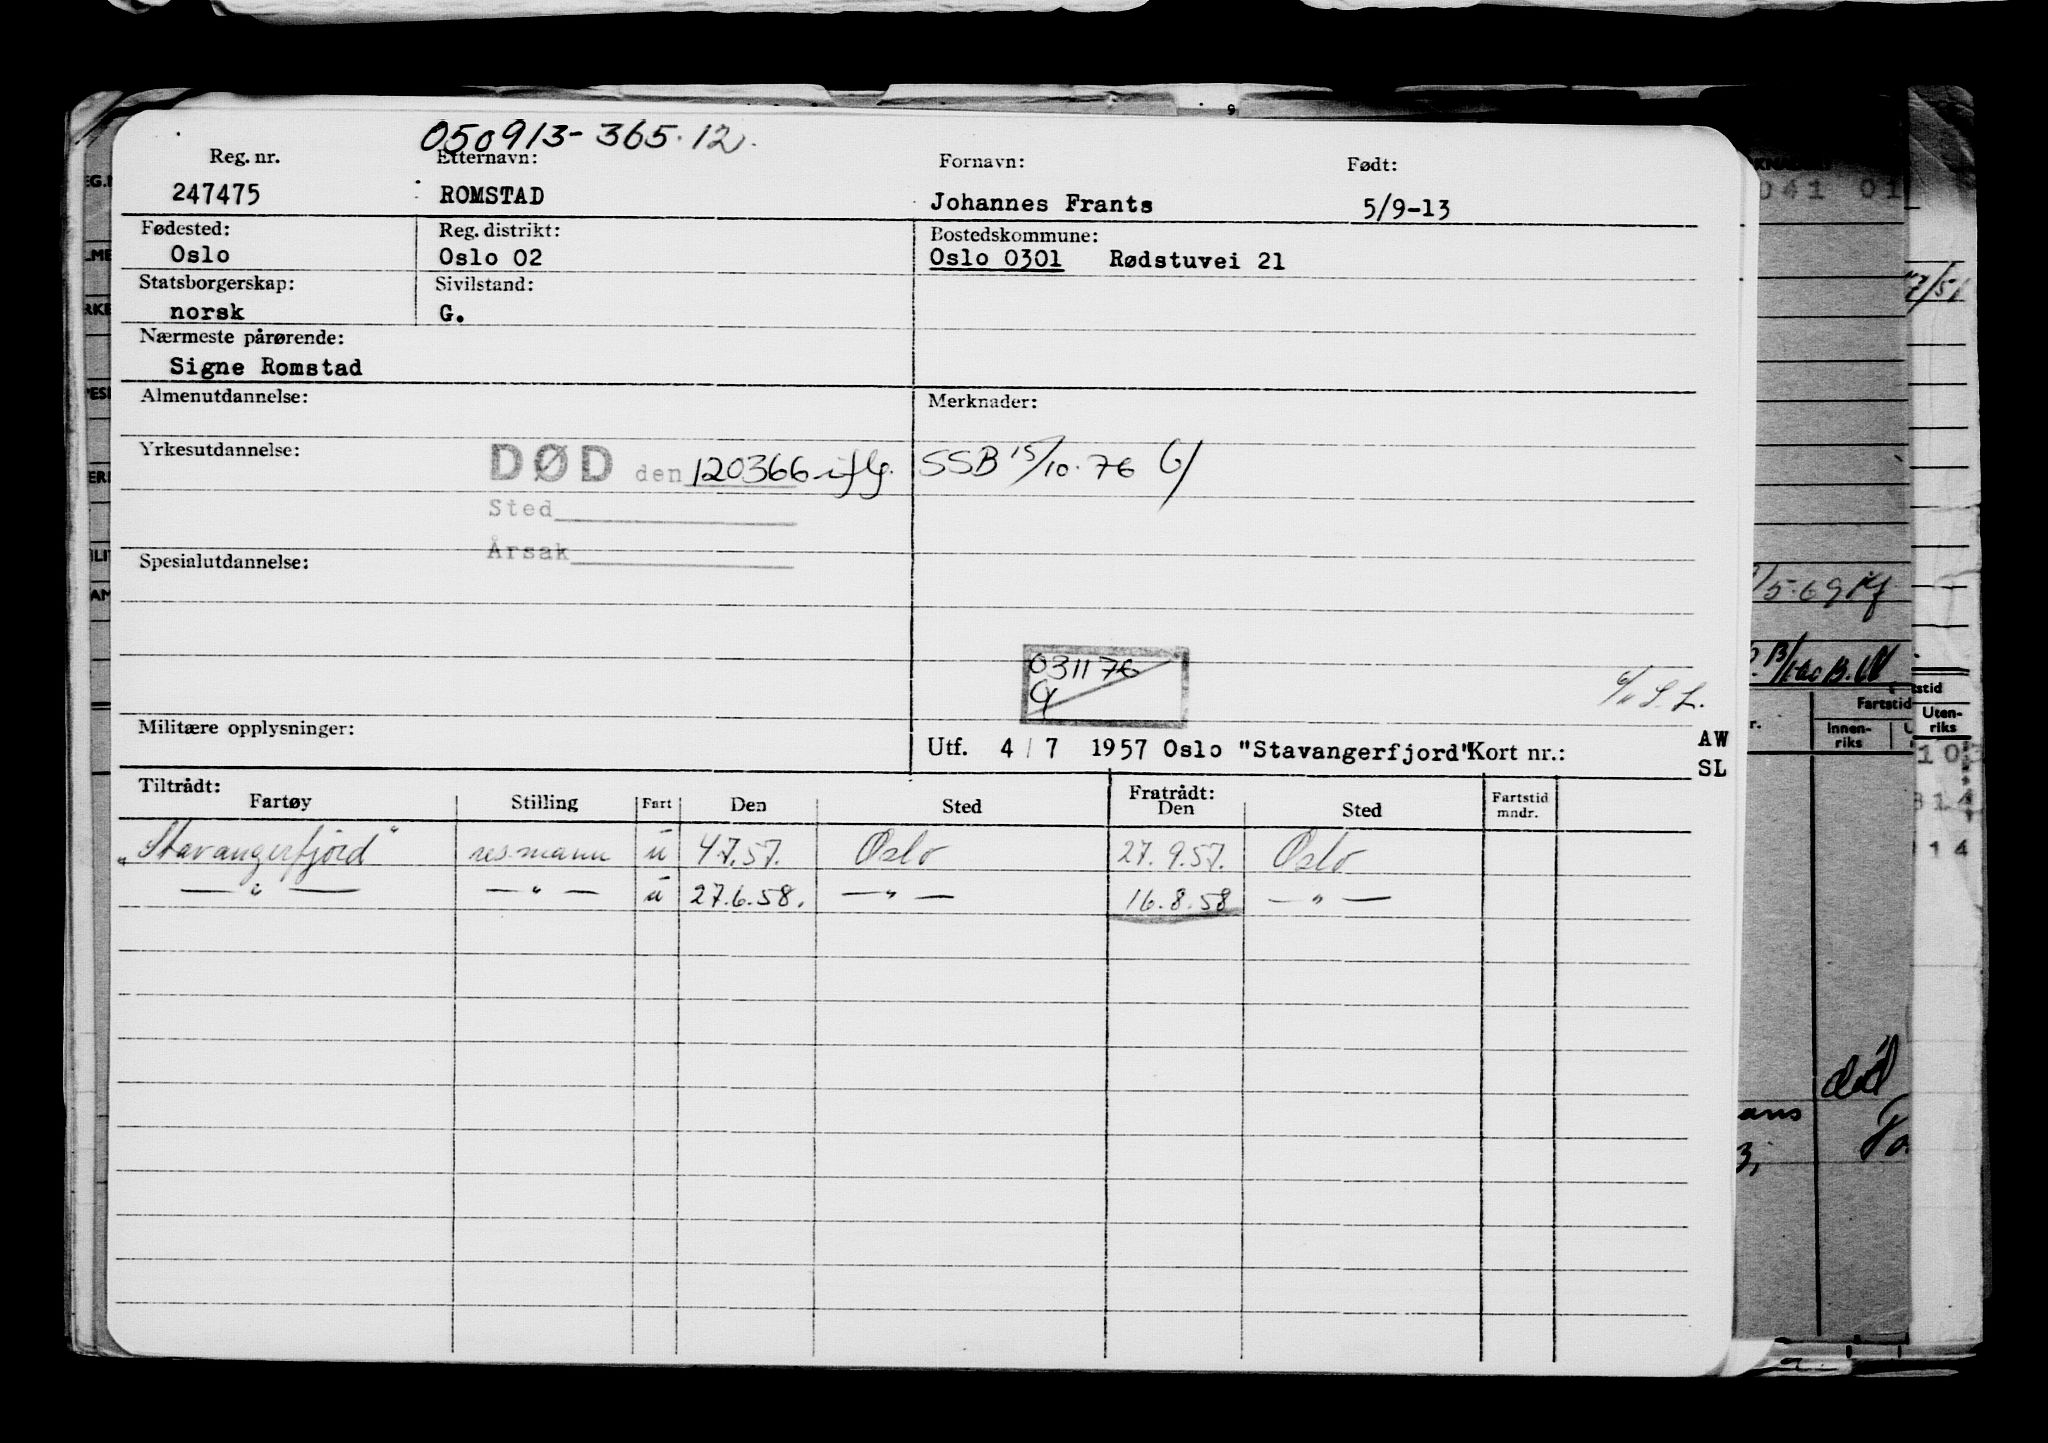 050913-365.12.
Reg. nr. Etternavn: Fornavn: Født:
247475 ROMSTAD Johannes Frants 5/9-13
Fødested: Reg. distrikt: Bostedskommune:
Oslo Oslo 02 Oslo 0301 Rødstuvei 21
Statsborgerskap: Sivilstand:
norsk G.
Nærmeste pårørende:
Signe Romstad
Almenutdannelse: Merknader:
Yrkesutdannelse:
DØD den 120366 iflg. SSB 15/10.76 G/
Sted
Årsak
Spesialutdannelse:
031176
G
6/11 S.L.
Militære opplysninger:
Utf. 4/7 1957 Oslo "Stavangerfjord" Kort nr.:
AW
SL
Tiltrådt: Fratrådt:
Fartøy Stilling Fart Den Sted Den Sted Fartstid mndr.
"Stavangerfjord" resmann u 4.7.57. Oslo 27.9.57. Oslo
— " — — " — u 27.6.58. — " — 16.8.58 — " —
041 01
7/51
/5-69
Fartstid
Innen-
riks
Uten-
riks
død
ans
3,